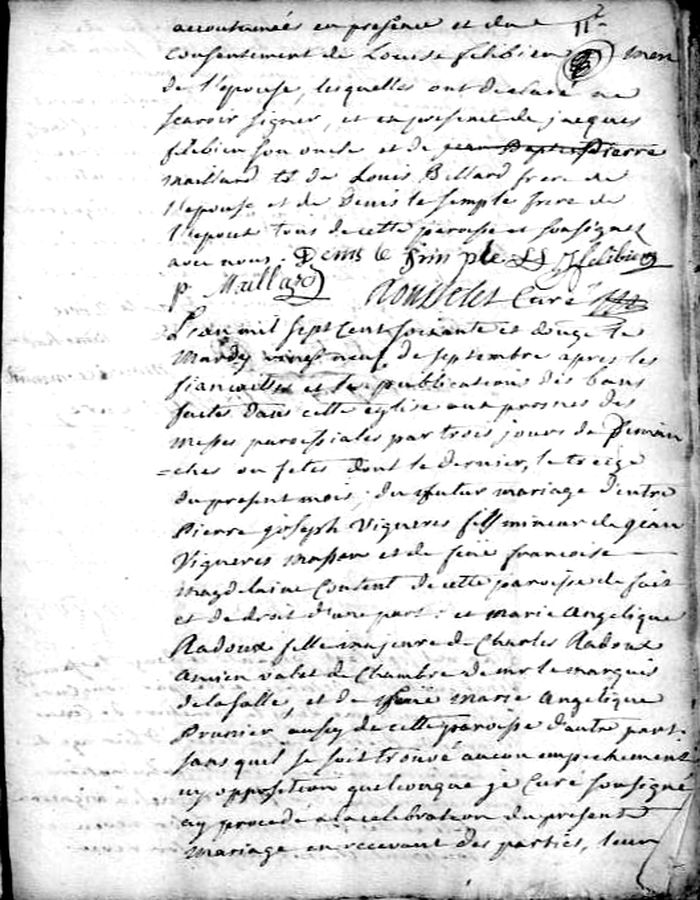 accoutumées en presence et du
11e
consentement de Louise felibien mere
de l'epouse, lesquelles ont declaré ne
scavoir signer, et en presence de jacques
felibien son oncle et de jean Baptiste Pierre
maillard de Louis Billard frere de
l'epouse et de Denis le simple frere de
l'epout tous de cette paroisse et soussignez
avec nous. Denis le Sin ple felibien
p Maillard Rousselet Curé
L'an mil sept cent soixante et douze le
Mardy vingt neuf de septembre apres les
fiancailles et la publication des bans
faites dans cette eglise aux prosnes des
messes paroissiales par trois jours de Diman
=ches ou fetes dont le dernier, le treize
du present mois, du futur mariage d'entre
Pierre joseph Vigneres fils mineur de jean
Vigneres masson et de feüe francoise
magdelaine Content de cette paroisse de fait
et de droit d'une part: et marie Angelique
Radoux fille majeure de Charles Radoux
Ancien valet de Chambre de mr le marquis
de la salle, et de feüe marie Angelique
Prunier aussy de cette paroisse d'autre part.
sans quil se soit trouvé aucun empechement
ny opposition quelconque je Curé soussigné
ay procedé a la celebration du present
mariage en recevant des parties, leur